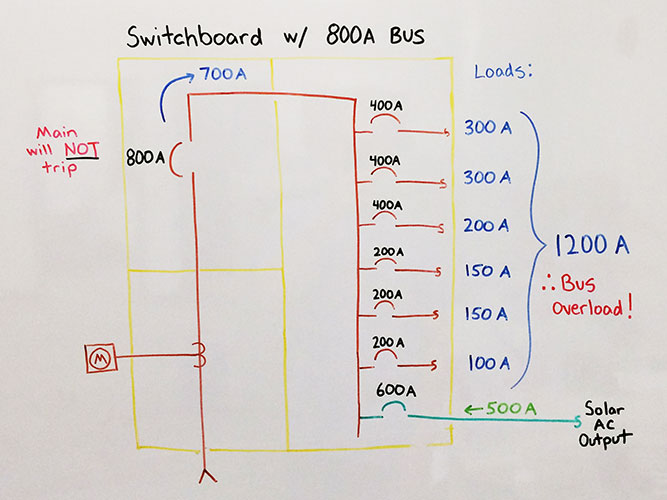 Switchboard w/ 800A Bus
700A
Loads:
Main
will NOT
trip
800A
400A
300A
400A
300A
400A
200A
200A
150A
200A
150A
200A
100A
1200A
∴ Bus
Overload!
600A
←500A
Solar
AC
Output
M